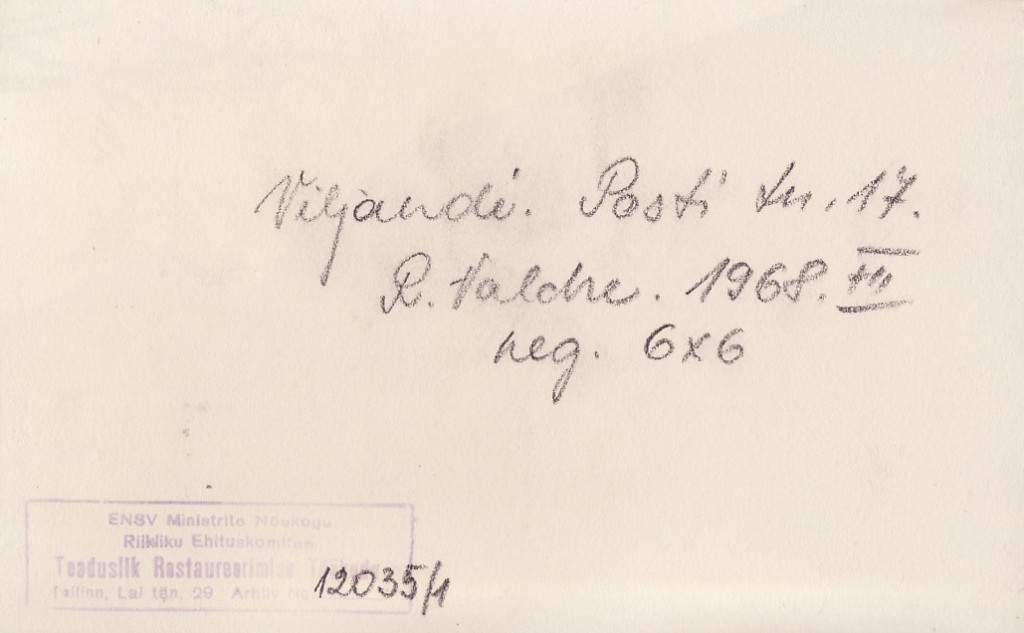 Viljandi. Posti tn. 17.
R. Valdre. 1968. VII
neg. 6x6
ENSV Ministrite Nõukogu
Riikliku Ehituskomitee
Teaduslik Restaureerimise
Tallinn, Lai tän. 29 Arhiiv No 12035/1